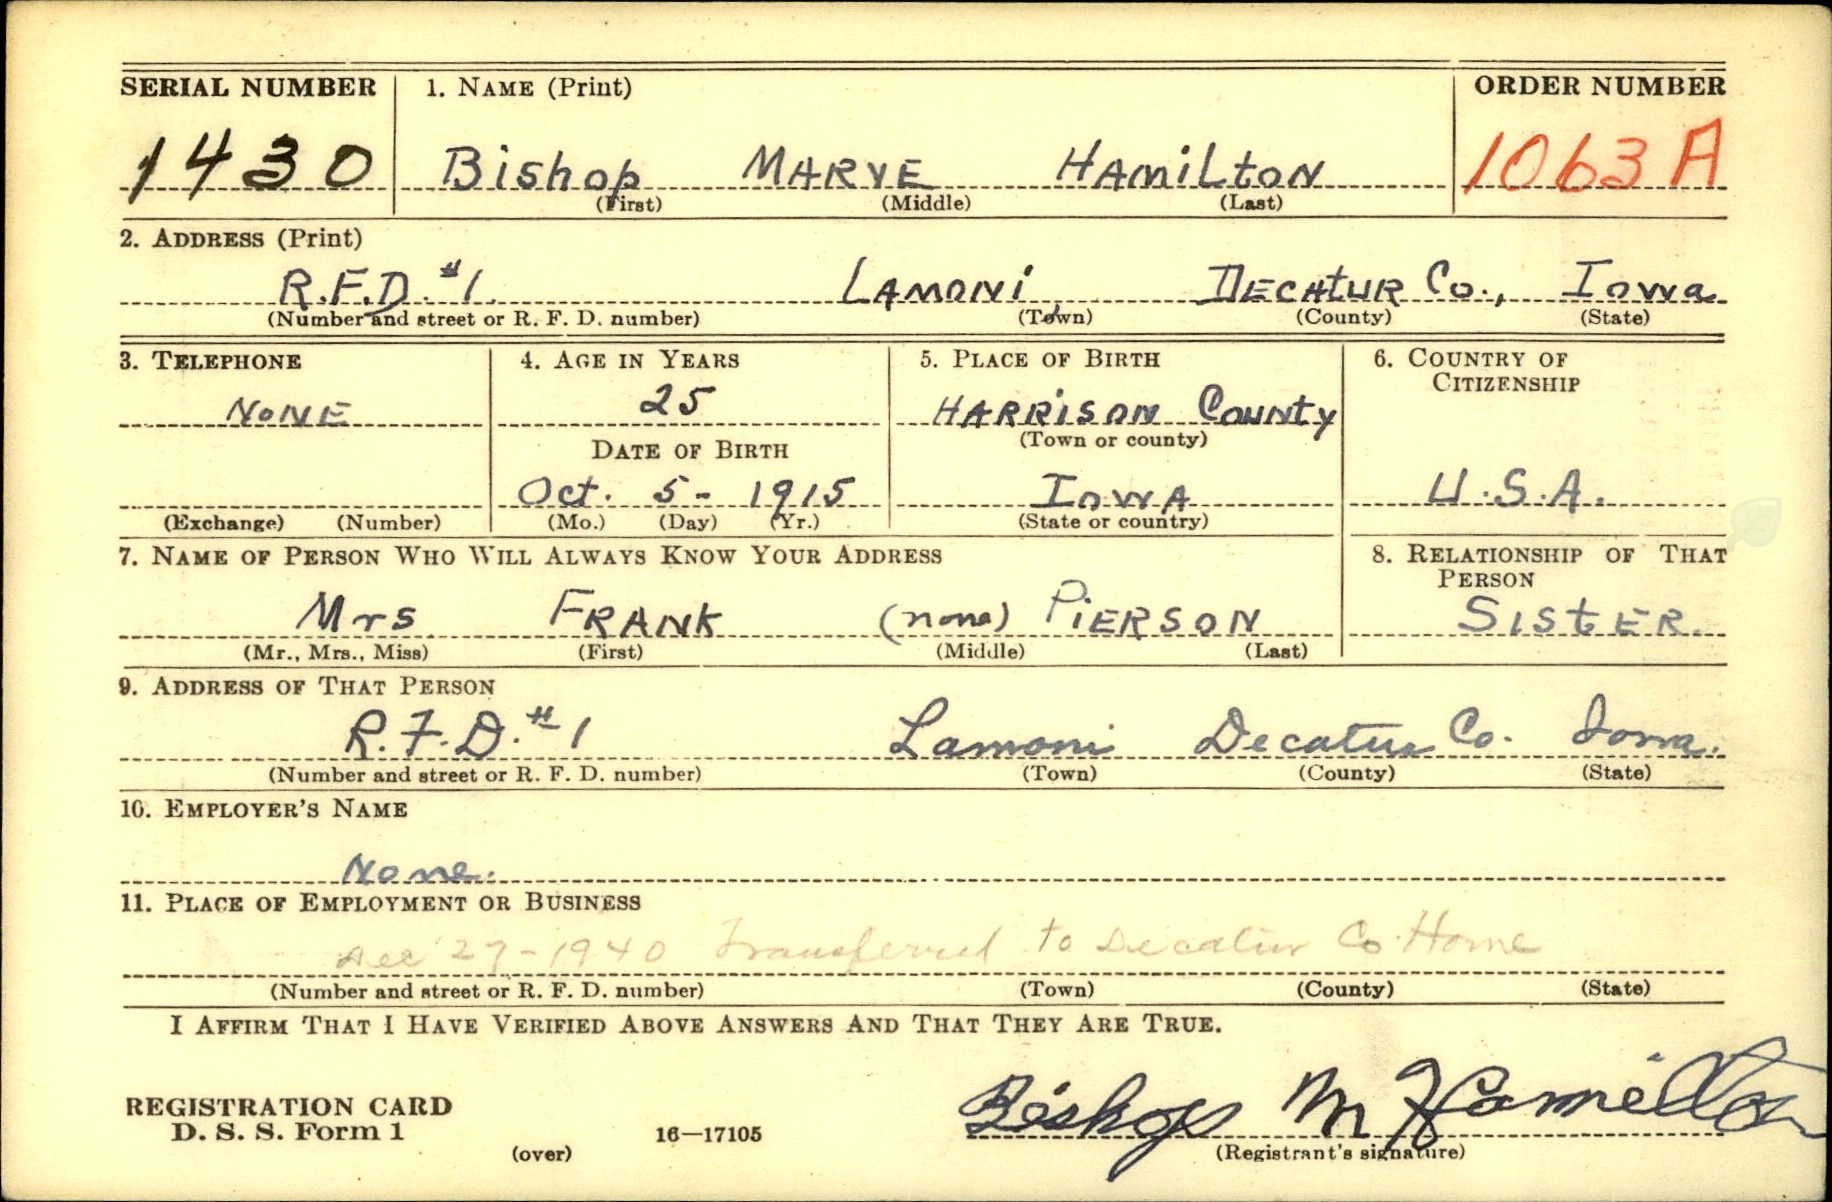 SERIAL NUMBER 1. NAME (Print) ORDER NUMBER
1430 Bishop MARVE HAMILTON 1063 A
(First) (Middle) (Last)
2. ADDRESS (Print)
R.F.D. #1. LAMONI, DECATUR Co., IOWA
(Number and street or R. F. D. number) (Town) (County) (State)
3. TELEPHONE 4. AGE IN YEARS 5. PLACE OF BIRTH 6. COUNTRY OF
CITIZENSHIP
NONE 25 HARRISON COUNTY
(Town or county)
DATE OF BIRTH
Oct. 5- 1915 IOWA U.S.A.
(Exchange) (Number) (Mo.) (Day) (Yr.) (State or country)
7. NAME OF PERSON WHO WILL ALWAYS KNOW YOUR ADDRESS 8. RELATIONSHIP OF THAT
PERSON
Mrs. FRANK (none) PIERSON SISTER.
(Mr., Mrs., Miss) (First) (Middle) (Last)
9. ADDRESS OF THAT PERSON
R.F.D. #1 Lamoni Decatur Co. Iowa.
(Number and street or R. F. D. number) (Town) (County) (State)
10. EMPLOYER'S NAME
None.
11. PLACE OF EMPLOYMENT OR BUSINESS
Dec 27-1940 Transferred to Decatur Co. Home
(Number and street or R. F. D. number) (Town) (County) (State)
I AFFIRM THAT I HAVE VERIFIED ABOVE ANSWERS AND THAT THEY ARE TRUE.
Bishop M Hamilton
REGISTRATION CARD
D. S. S. Form 1 16—17105
(over) (Registrant's signature)